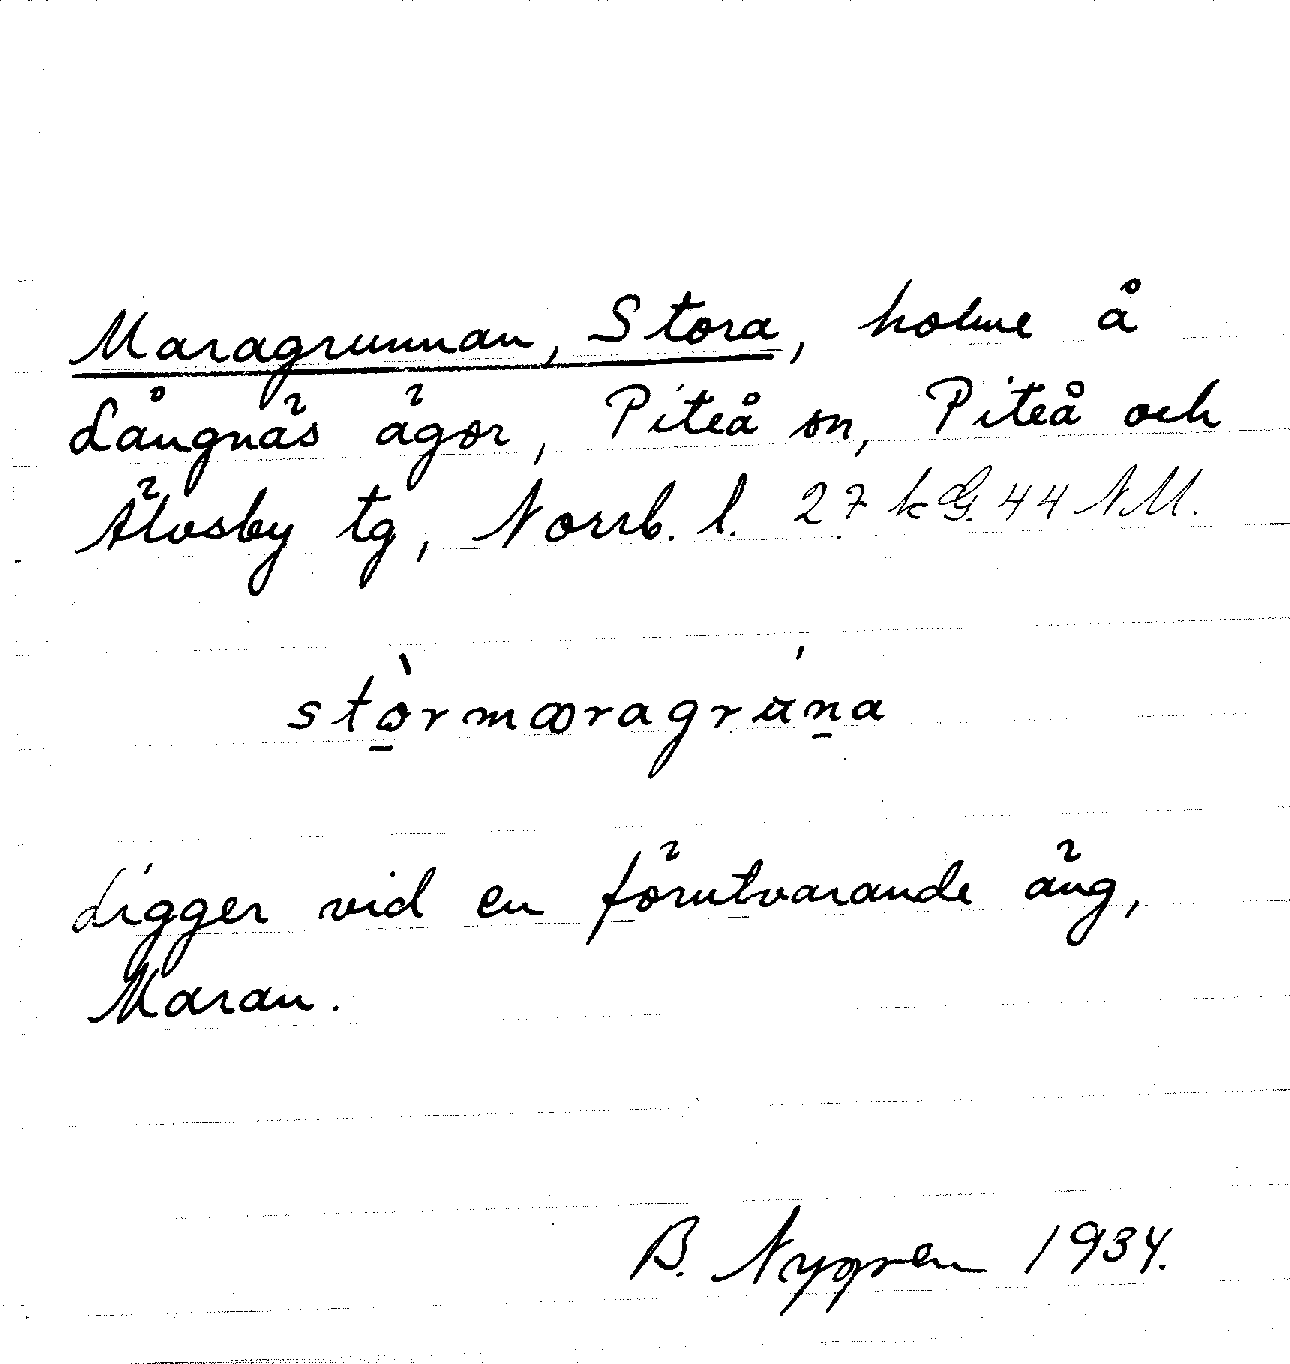 Maragrunnan, Stora, holme å
Långnäs ägor, Piteå sn, Piteå och
Älvsby tg, Norrb. l. 27 k G. 44 NM.
stòrmæragruna
Ligger vid en förutvarande äng,
Maran.
B. Nygren 1934.